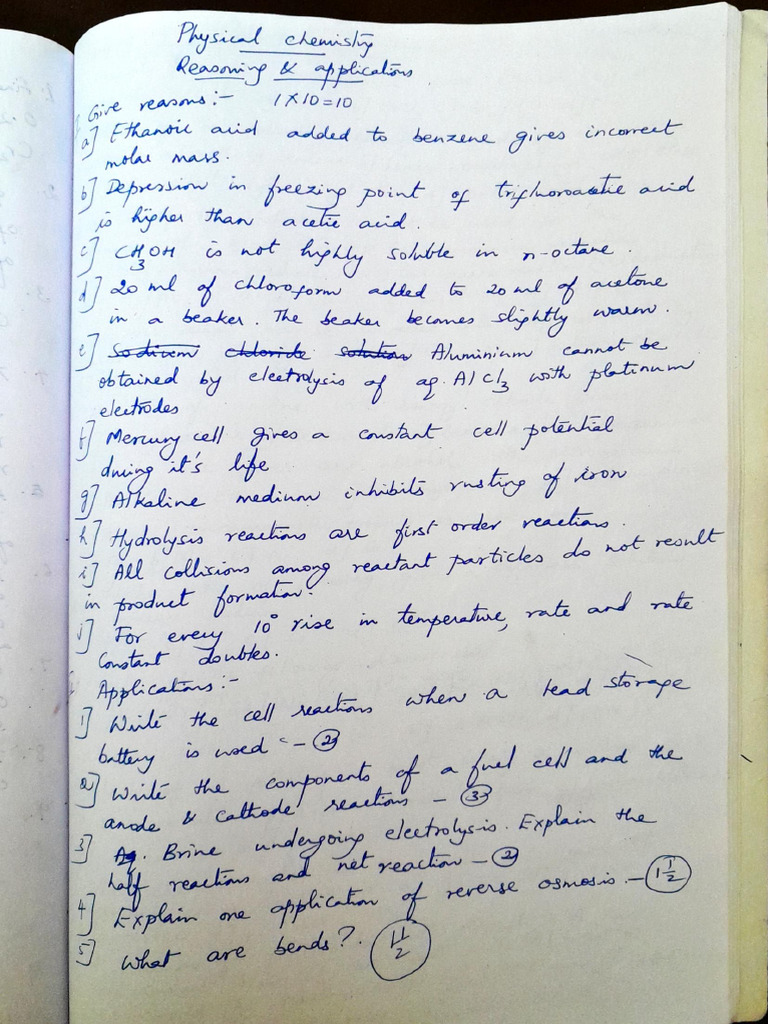 Physical chemistry
Reasoning & applications
Give reasons:- 1×10=10
a] Ethanoic acid added to benzene gives incorrect
molar mass.
b] Depression in freezing point of trifluoroacetic acid
is higher than acetic acid.
c] CH3OH is not highly soluble in n-octane.
d] 20 ml of chloroform added to 20 ml of acetone
in a beaker. The beaker becomes slightly warm.
e] Sodium chloride solution Aluminium cannot be
obtained by electrolysis of aq. AlCl3 with platinum
electrodes
f] Mercury cell gives a constant cell potential
during it's life
g] Alkaline medium inhibits rusting of iron
h] Hydrolysis reactions are first order reactions.
i] All collisions among reactant particles do not result
in product formation.
j] For every 10° rise in temperature, rate and rate
constant doubles.
Applications:-
1] Write the cell reactions when a lead storage
battery is used - 2
2] Write the components of a fuel cell and the
anode & cathode reactions - 3
3] Aq. Brine undergoing electrolysis. Explain the
half reactions and net reaction - 2
4] Explain one application of reverse osmosis. - 1 1/2
5] What are bends? 1 1/2